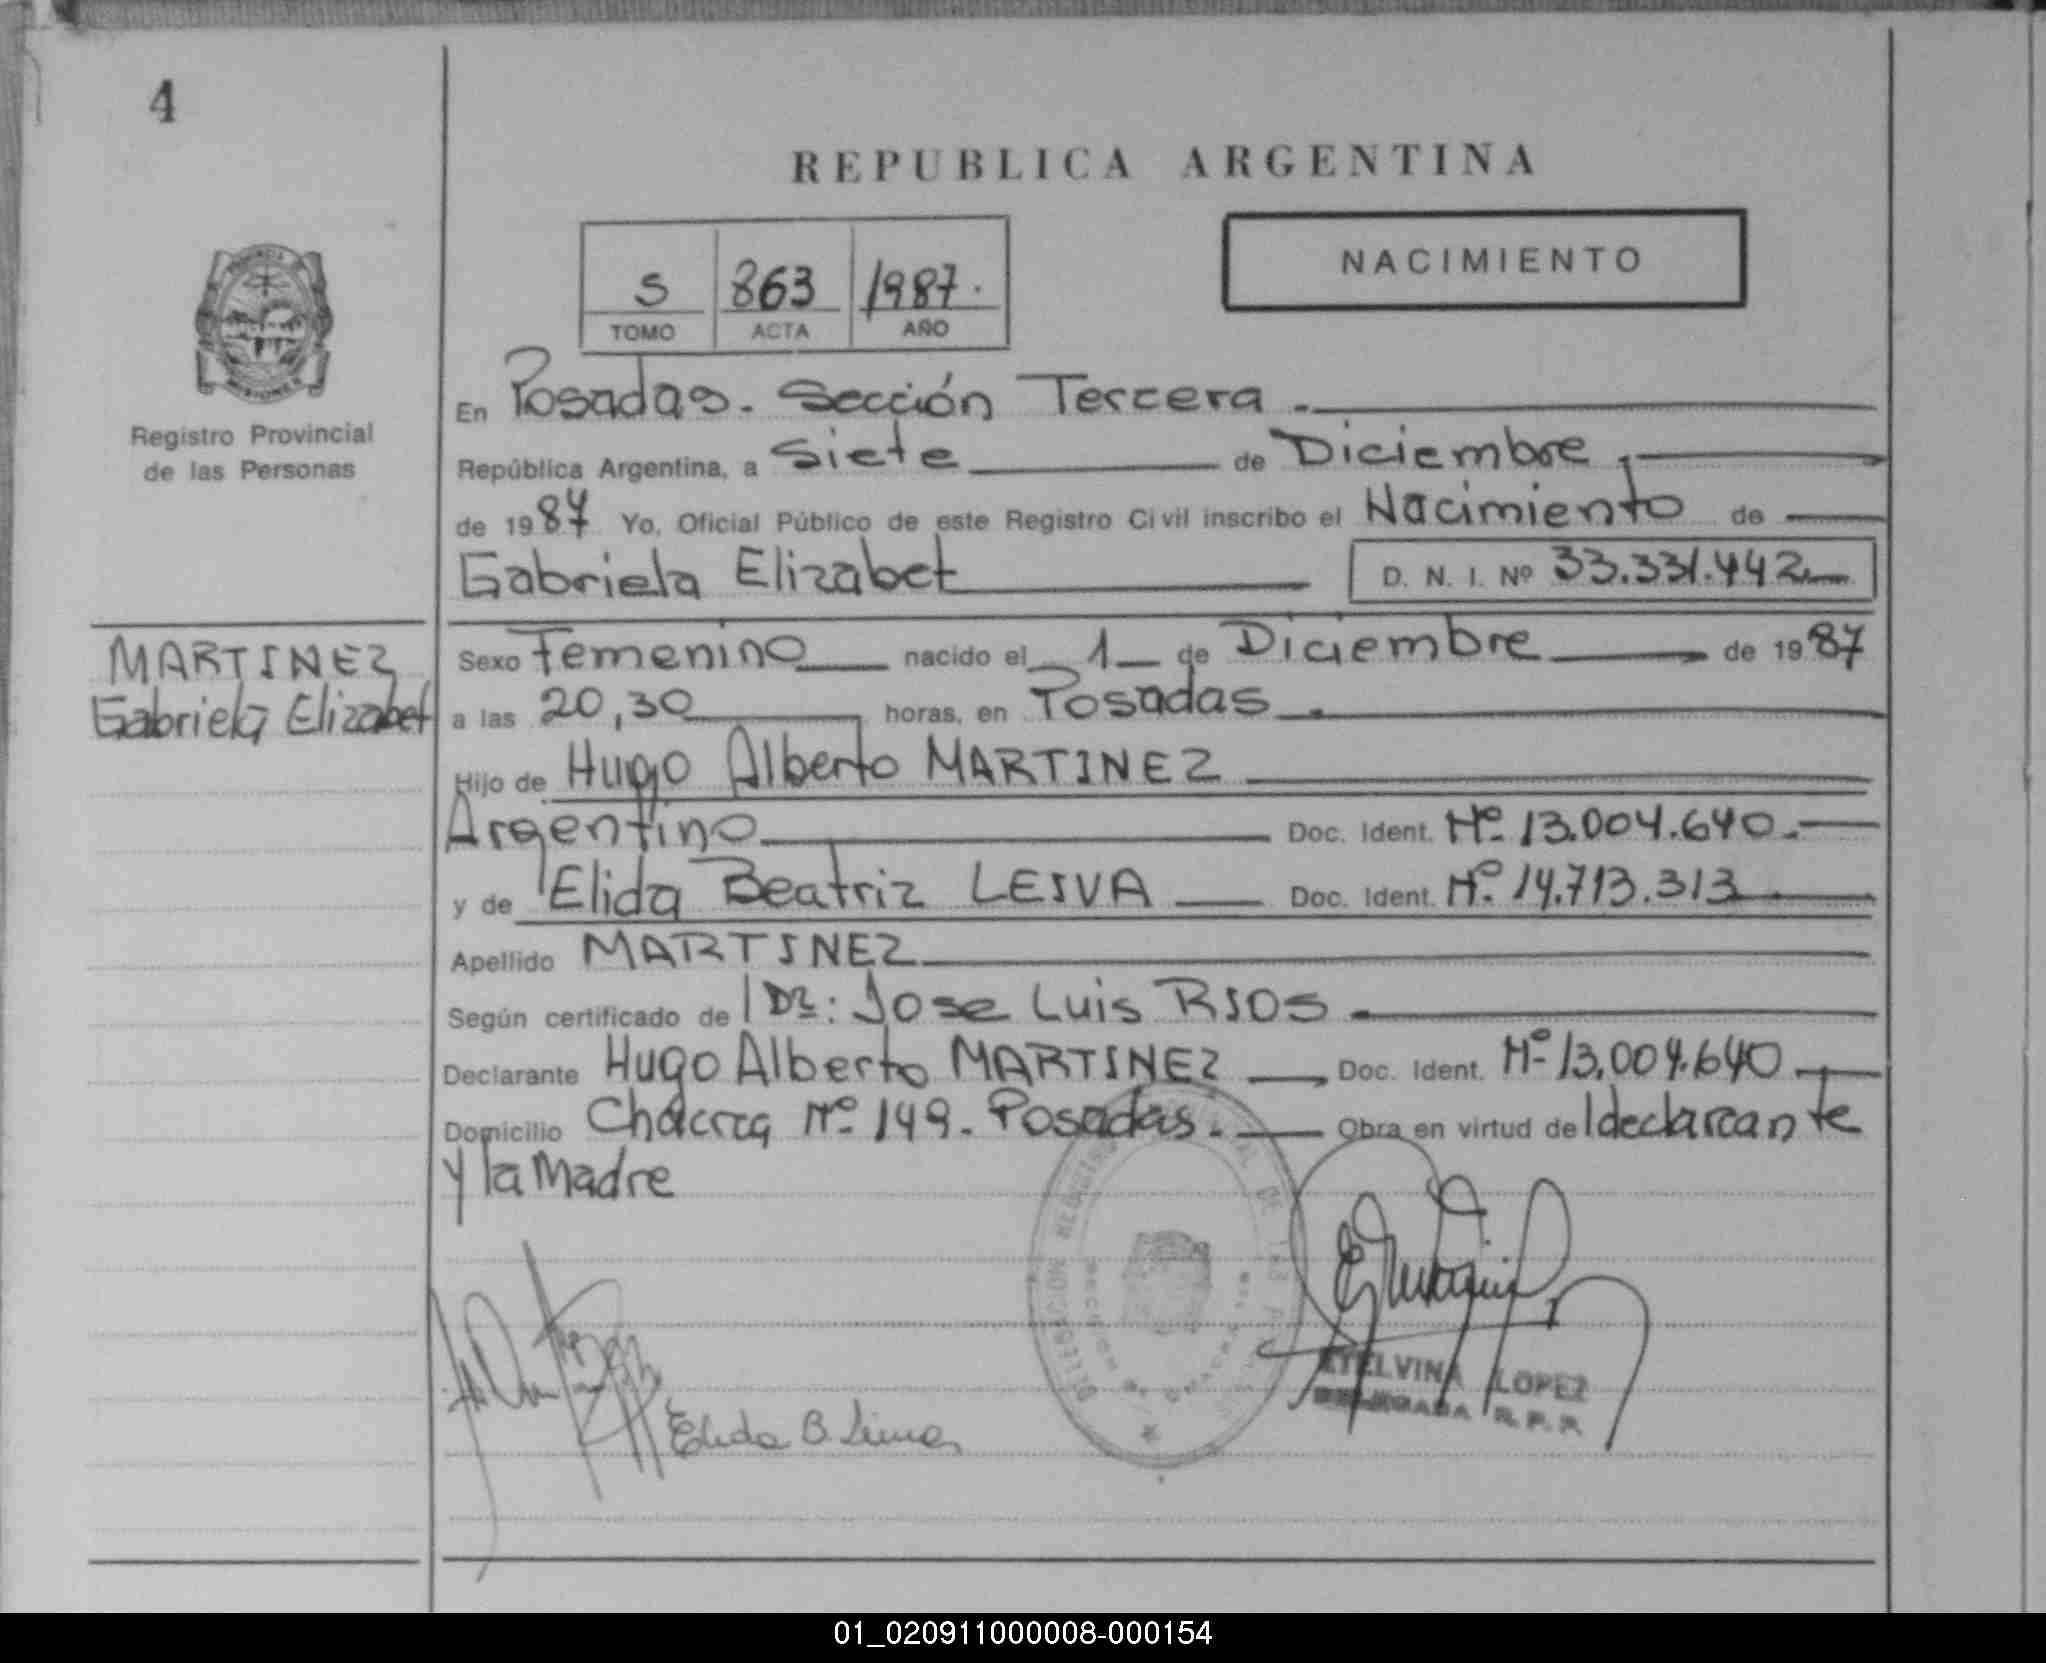 4
REPUBLICA ARGENTINA
NACIMIENTO
S 863 1987.
TOMO ACTA AÑO
Registro Provincial
de las Personas
En Posadas. Sección Tercera.
República Argentina, a Siete de Diciembre
de 1987 Yo, Oficial Público de este Registro Civil inscribo el Nacimiento de
Gabriela Elizabet D. N. I. Nº 33.331.442
MARTINEZ
Gabriela Elizabet
Sexo Femenino nacido el 1 de Diciembre de 1987
a las 20,30 horas, en Posadas.
Hijo de Hugo Alberto MARTINEZ
Argentino Doc. Ident. Nº 13.004.640.
y de Elida Beatriz LEIVA Doc. Ident. Nº 14.713.313
Apellido MARTINEZ
Según certificado de l Dr: Jose Luis RIOS
Declarante Hugo Alberto MARTINEZ Doc. Ident. Nº 13.004.640
Domicilio Chacra Nº 149. Posadas. Obra en virtud de l declarante
y la Madre
Elida B. Leiva
ETELVINA LOPEZ
DELEGADA R. P. P.
01_020911000008-000154